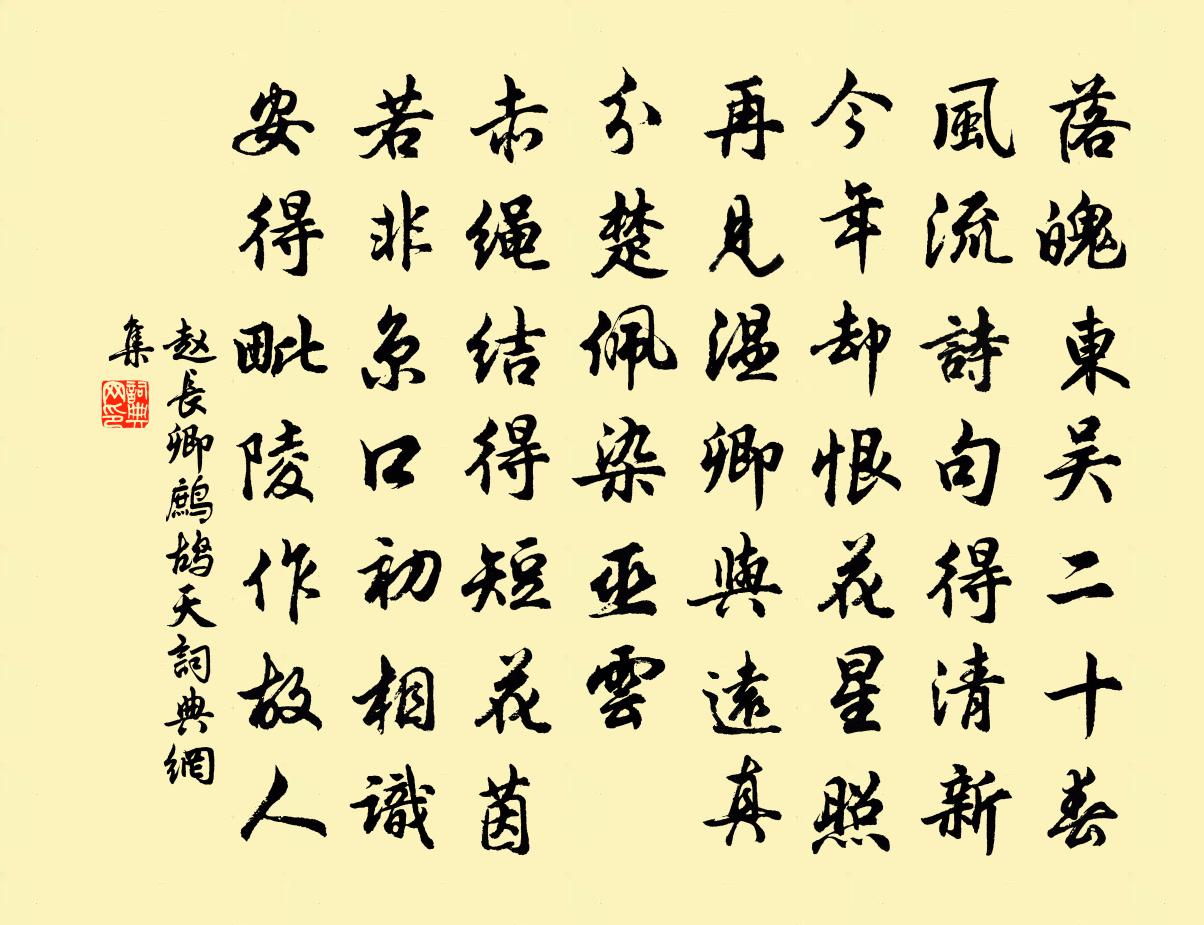 落魄東吴二十春
風流詩句得清新
今年却恨花星照
再見温卿與遠真
分楚佩染巫雲
赤绳结得短花茵
若非京口初相識
安得毗陵作故人
赵長卿鹧鸪天詞典網
集
詞典网印